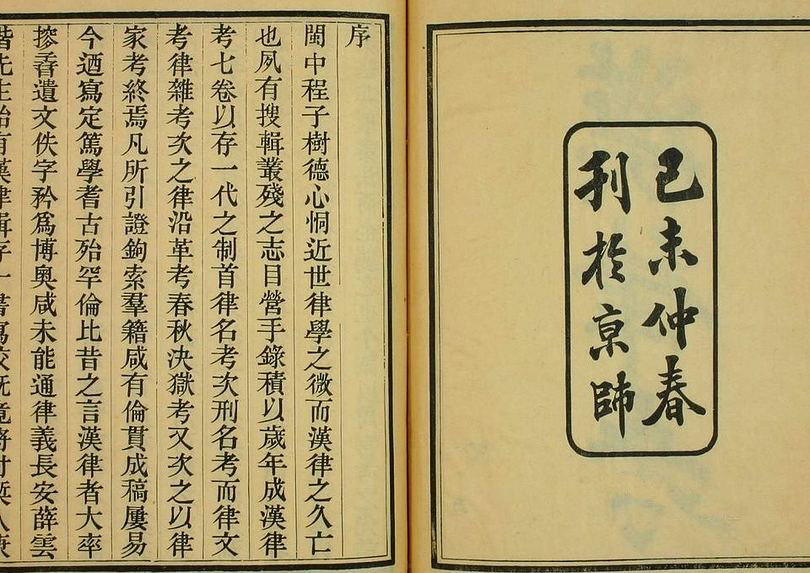 己未仲春
刊於京師
序
閩中程子樹德心恫近世律學之微而漢律之久亡
也夙有搜輯叢殘之志目營手錄積以歲年成漢律
考七卷以存一代之制首律名考次刑名考而律文
考律雜考次之律沿革考春秋決獄考又次之以律
家考終焉凡所引證鉤索羣籍咸有倫貫成稿屢易
今迺寫定篤學耆古殆罕倫比昔之言漢律者大率
摎掇遺文佚字矜為博奧咸未能通律義長安薛雲
階先生始有漢律輯存一書寫校既竟將付